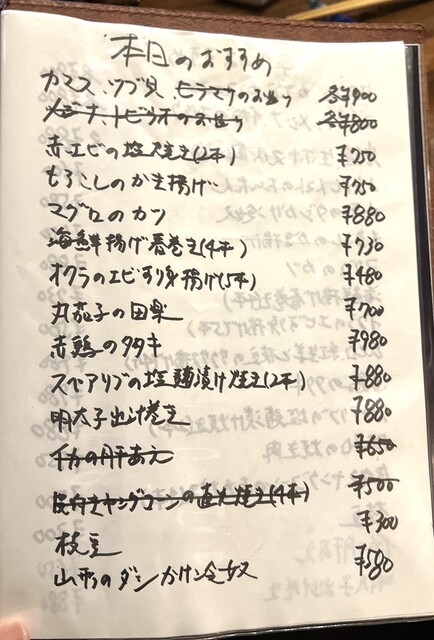 本日のおすすめ
カマス、ツブ貝 ヒラマサのお造り 各¥900
メジナ、トビウオのお造り 各¥800
赤エビの塩焼き(2本) ¥750
もろこしのかき揚げ ¥750
マグロのカツ ¥880
海鮮揚げ春巻き(4本) ¥730
オクラのエビすり身揚げ(5本) ¥480
丸茄子の田楽 ¥700
赤鶏のタタキ ¥980
スペアリブの塩麹漬け焼き(2本) ¥880
明太子出汁巻き ¥880
イカの肝あえ ¥650
皮付きヤングコーンの直火焼き(4本) ¥500
枝豆 ¥300
山形のダシかけ冷奴 ¥580